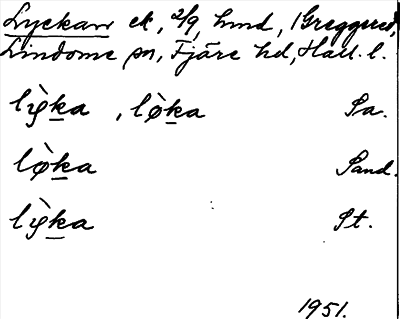 Lyckan ek, 2/9, hmd, Greggered,
Lindome sn, Fjäre hd, Hall. l.
lỳka , lø̀ka Sa.
lø̀ka Sand.
lỳka St.
1951.